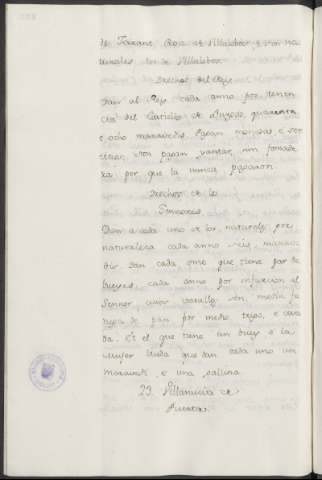 de Ferrant Rois de Villalobos e son na
turales los de Villalobos
Derechos del Rey
Dan al Rey cada anno por tenen
cia del Castiello de quarenta
e ocho maravedis. Pagan monedas e ser
vicios. Non pagan yantar nin fonsade
ra, por que la nunca pagaron
Derechos de los
Sennores
Dan a cada uno de los naturales por
naturaleza cada anno seis marave
dis. Dan cada omne que tiene par de
bueyes cada anno por infurcion al
Sennor, cuyo vasallo es, media fa
nega de pan por medio, trigo, e ceva
da. Et el que tiene un buey o la
muger viuda que dan cada uno un
maravedi, e una gallina
23. Villanueva de